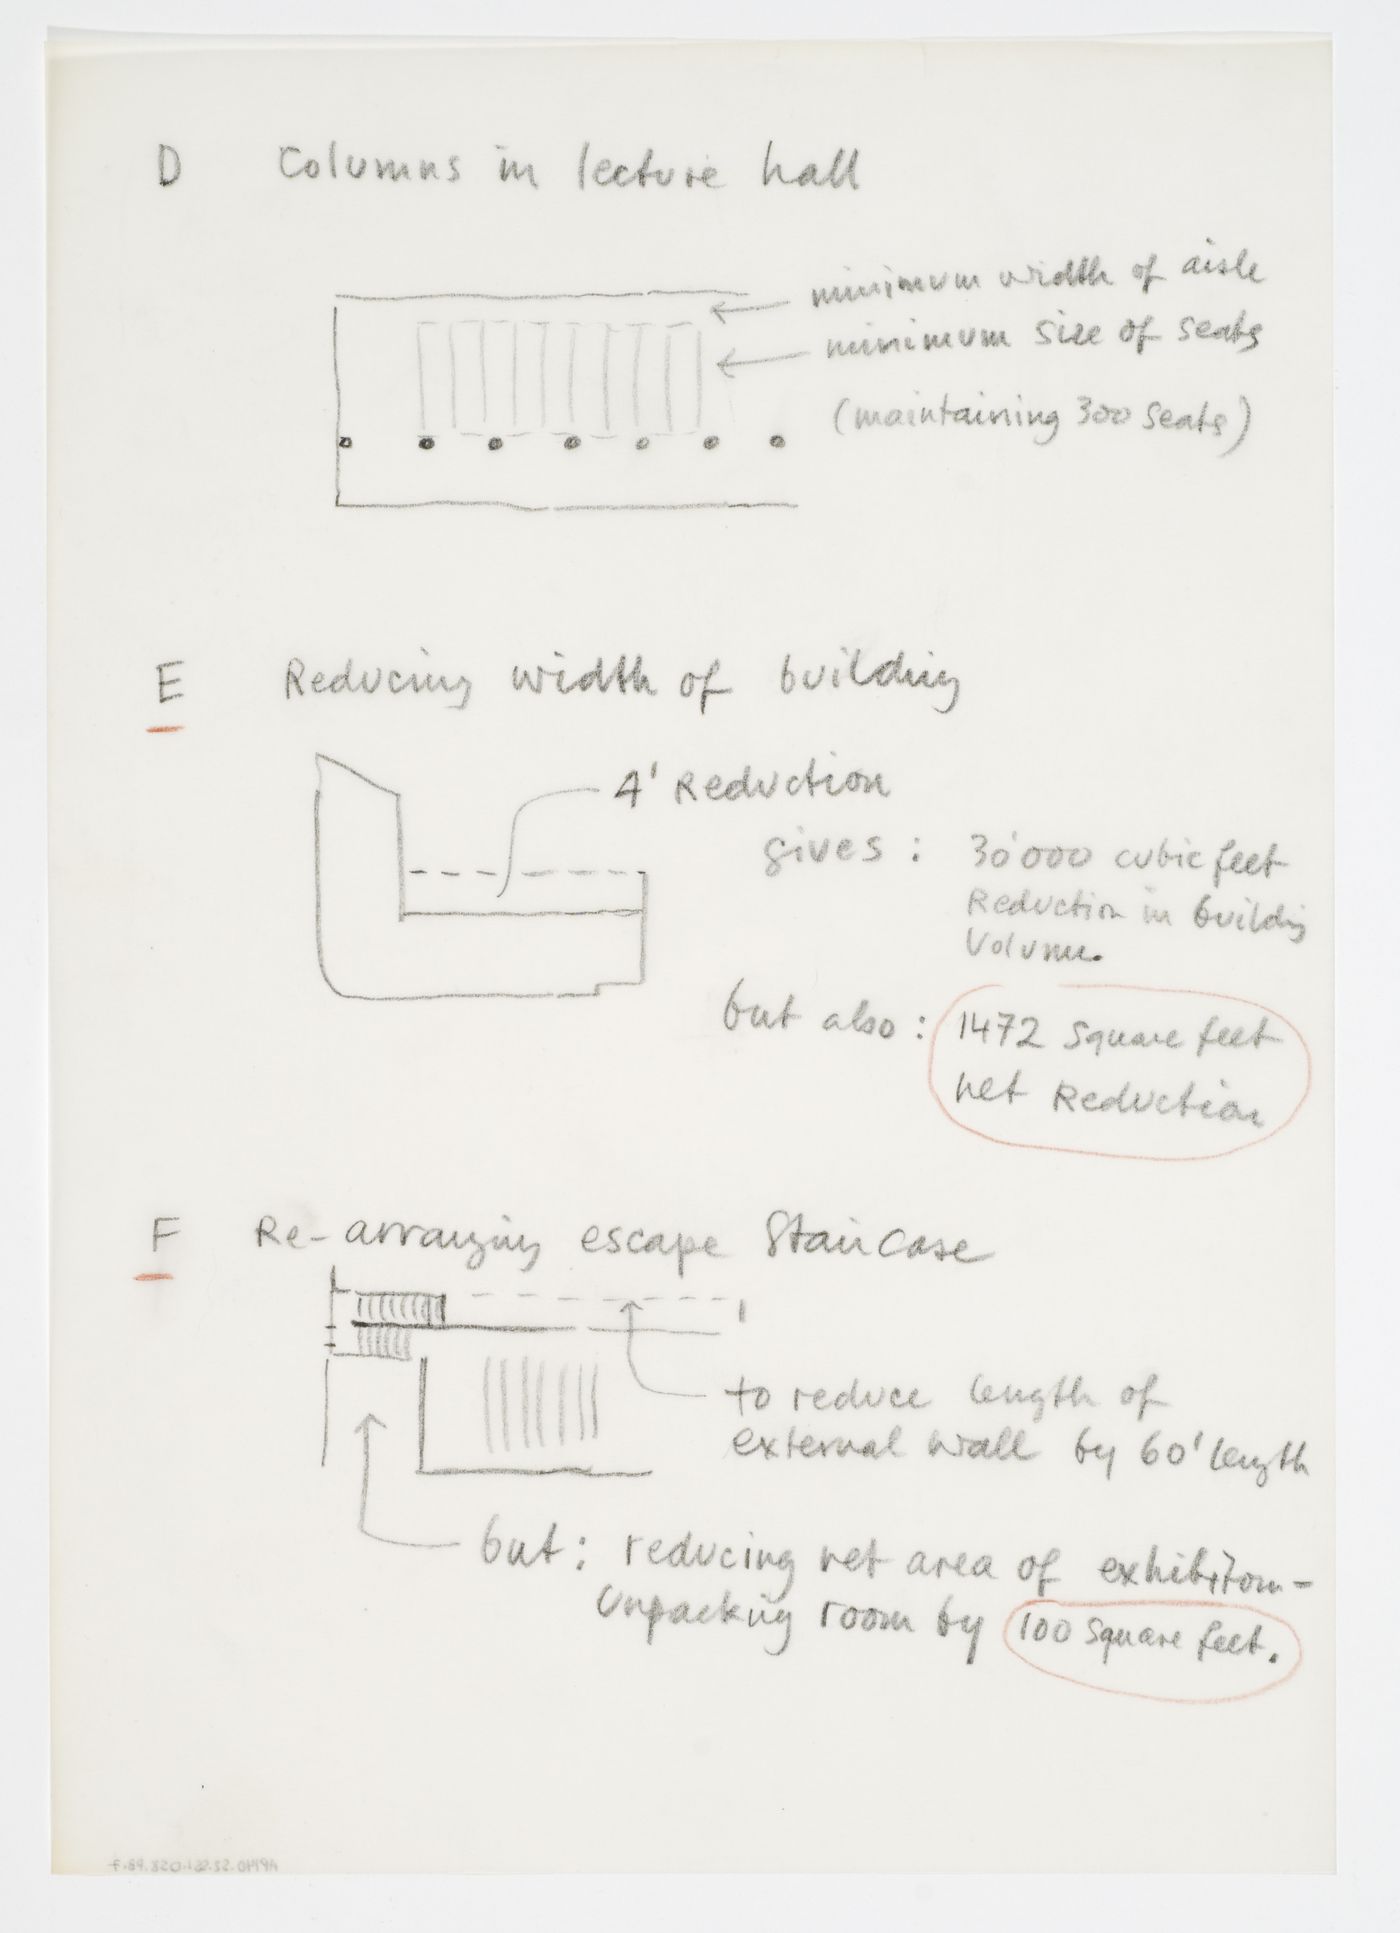 D Columns in lecture hall
minimum width of aisle
minimum size of seats
(maintaining 300 seats)
E Reducing width of building
4' Reduction
gives: 30'000 cubic feet
Reduction in building
Volume.
but also: 1472 square feet
net Reduction
F Re-arranging escape Staircase
to reduce length of
external wall by 60' length
but: reducing net area of exhibition-
Unpacking room by 100 square feet.